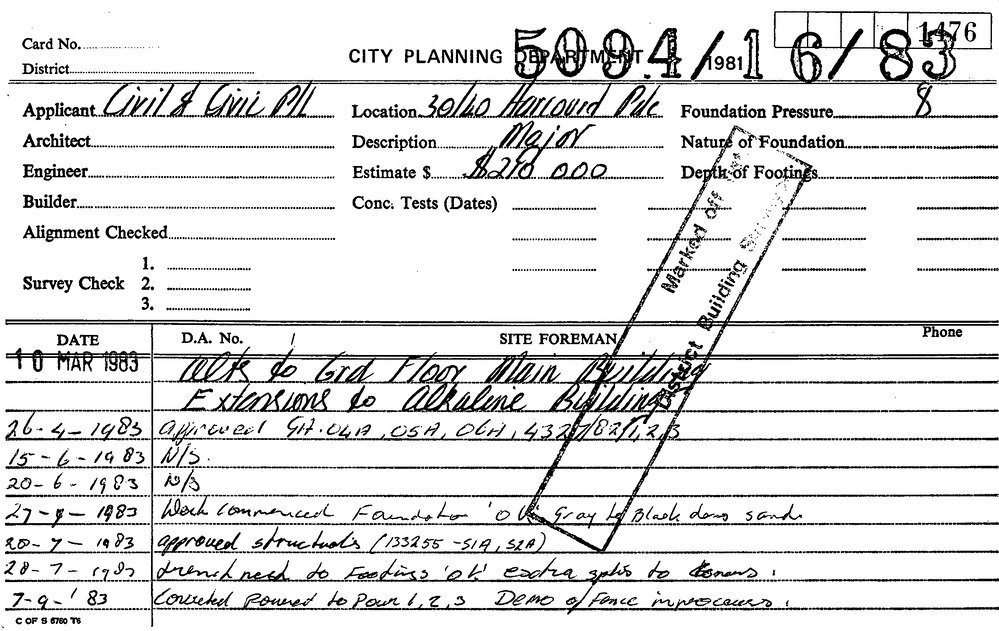 1476
Card No.
5094/16/83
CITY PLANNING DEPARTMENT 1981
District
Applicant Civil & Civic P/L Location 30/40 Harcourt Pde Foundation Pressure 8
Architect Description Major Nature of Foundation
Engineer Estimate $ $210 000 Depth of Footings
Builder Conc. Tests (Dates)
Alignment Checked
Survey Check 1.
2.
3.
Marked off
District Building
DATE D.A. No. SITE FOREMAN Phone
10 MAR 1983 Alts to Grd Floor Main Building
Extensions to Alkaline Building
26-4-1983 approved GA.04A, 05A, 06A, 4327/82/1,2,3
15-6-1983 N/S.
20-6-1983 N/S
1983 Work commenced Foundation 'OK' Gray to Black sand
20-7-1983 approved structurals (133255-S1A, S2A)
28-7-1983 to Footings 'OK' extra to
7-9-'83 Poured to Pour 1, 2, 3 Demo of Fence in
C OF S 6760 T6